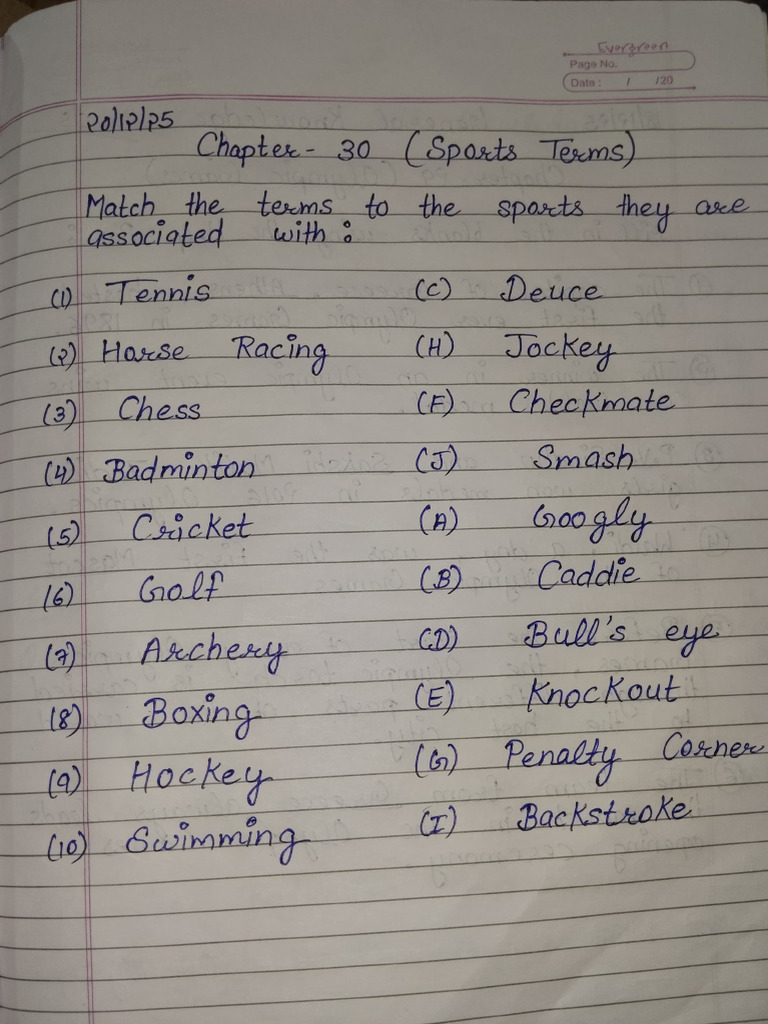 Evergreen
Page No.
Date : / /20
20/12/25
Chapter- 30 (Sports Terms)
Match the terms to the sports they are
associated with :
(1) Tennis (C) Deuce
(2) Horse Racing (H) Jockey
(3) Chess (F) Checkmate
(4) Badminton (J) Smash
(5) Cricket (A) Googly
(6) Golf (B) Caddie
(7) Archery (D) Bull's eye
(8) Boxing (E) Knockout
(9) Hockey (G) Penalty Corner
(10) Swimming (I) Backstroke